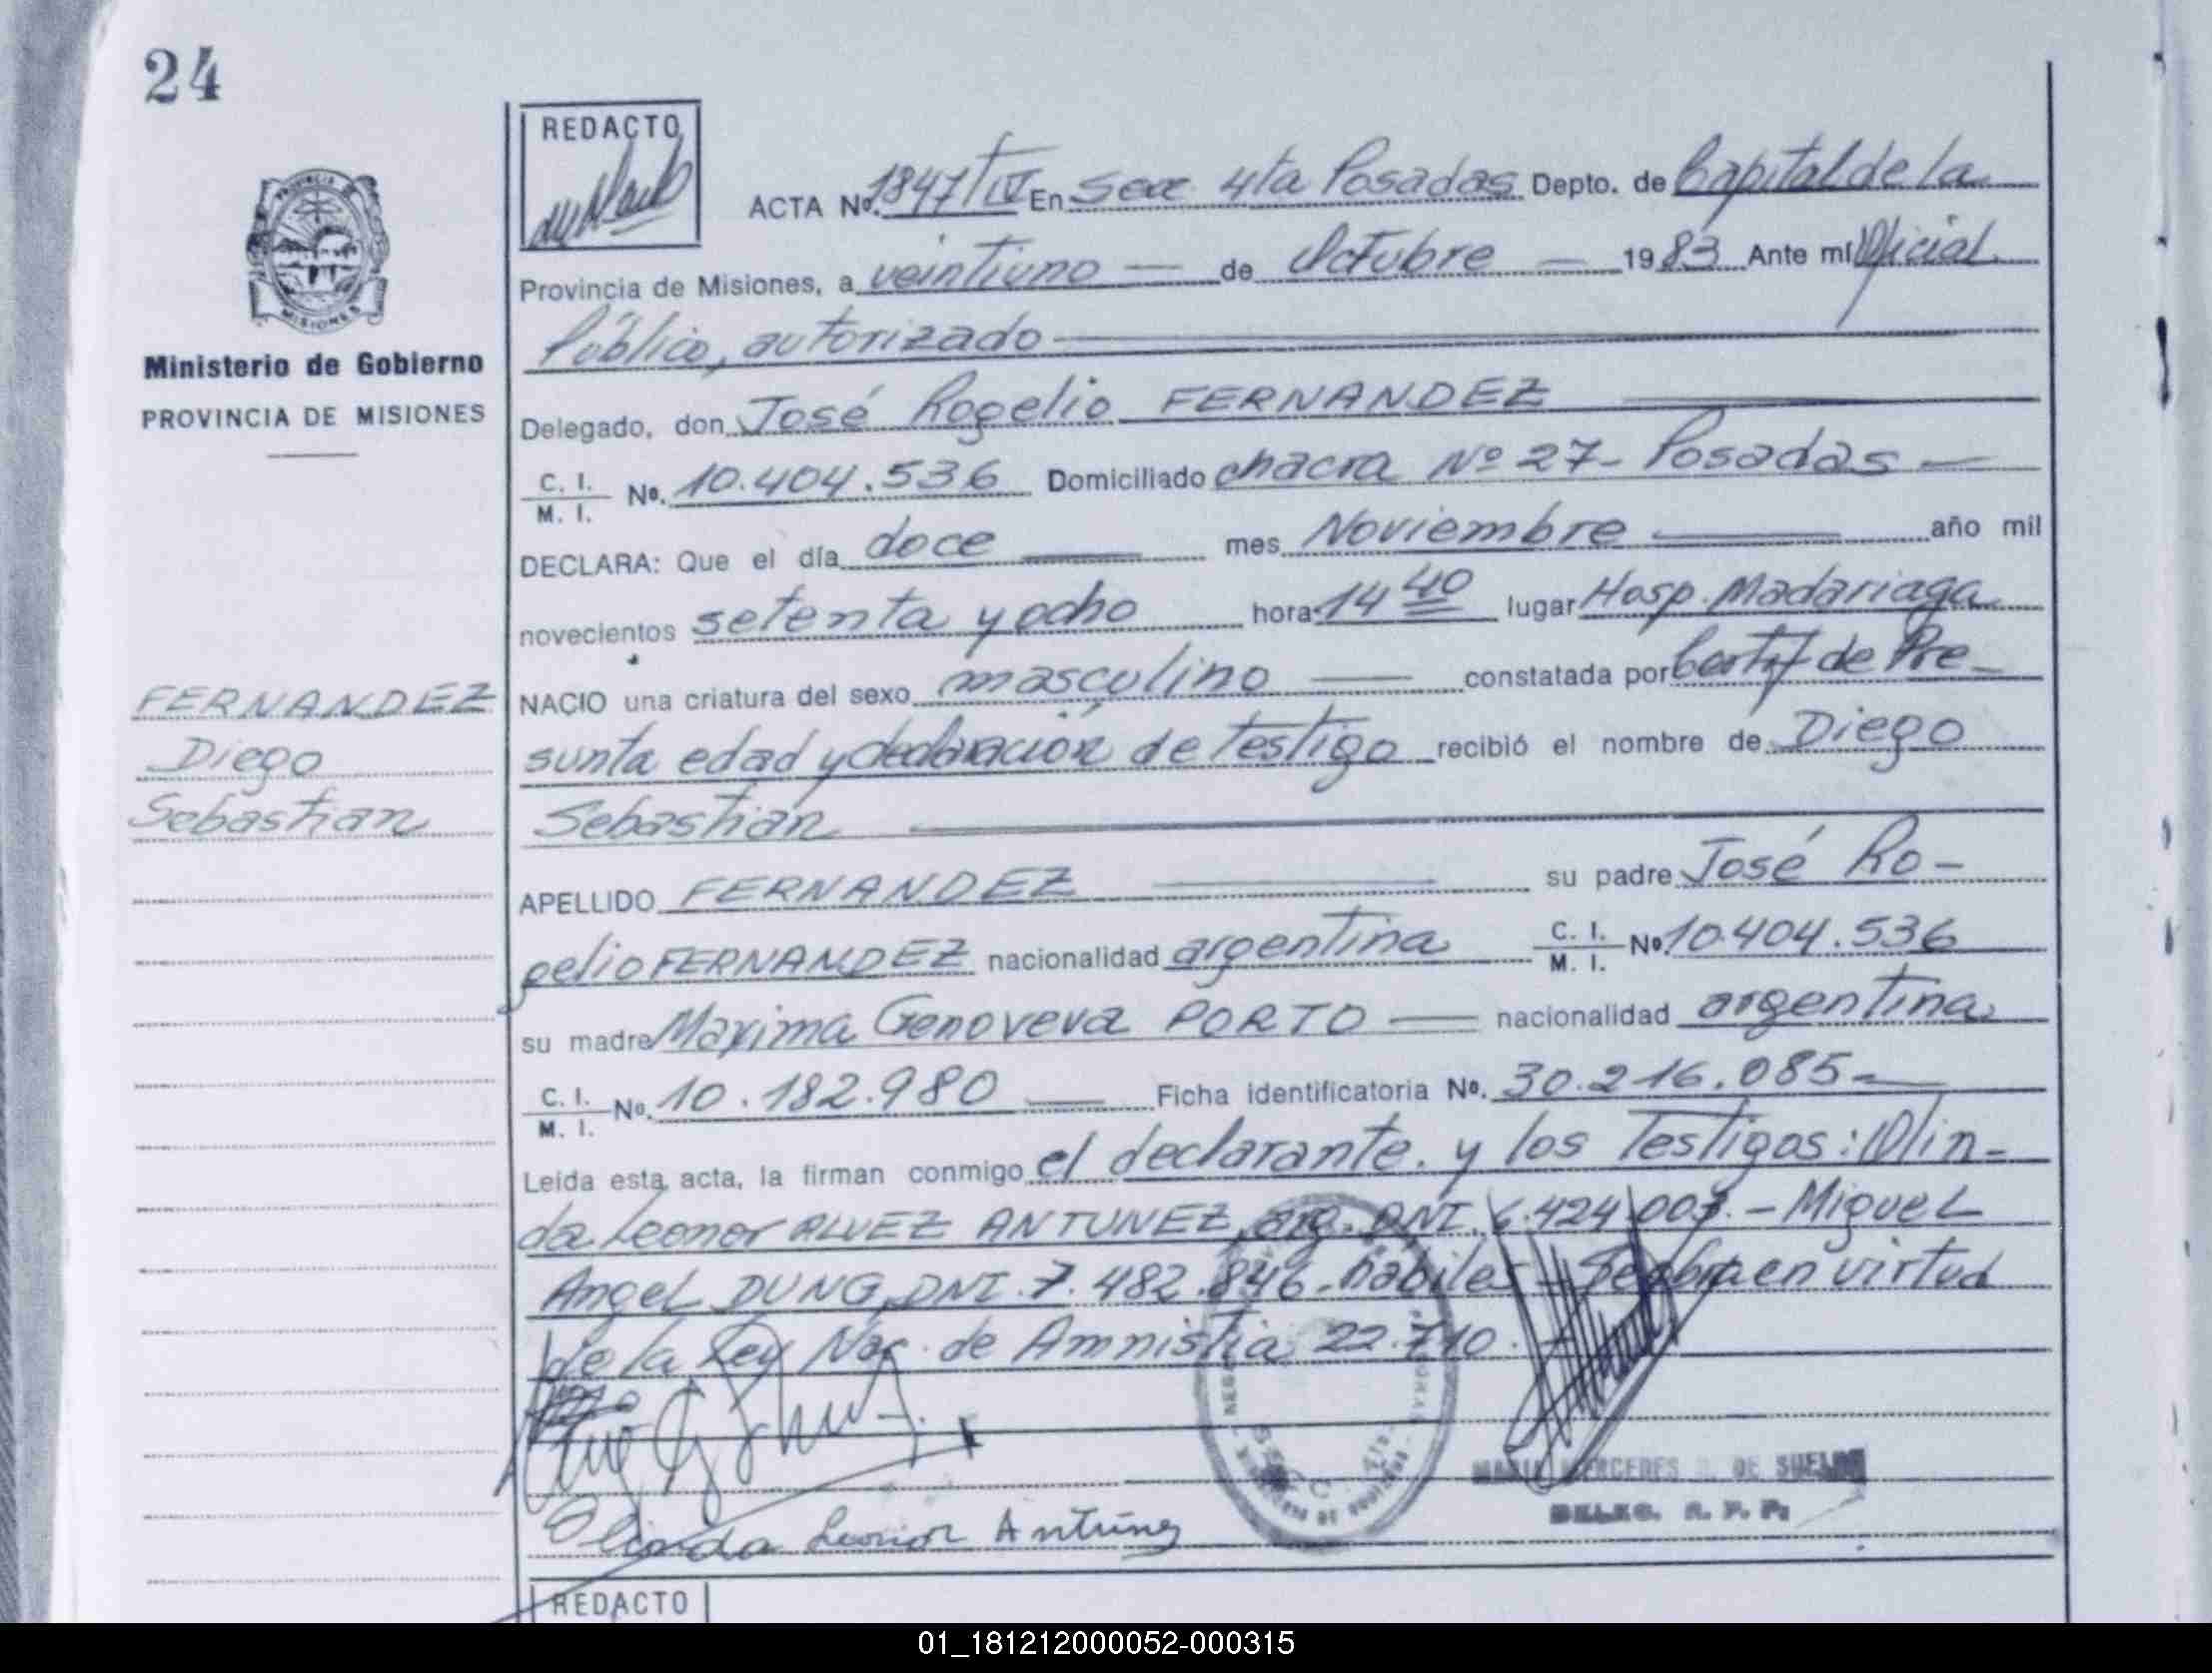 24
PROVINCIA DE
MISIONES
Ministerio de Gobierno
PROVINCIA DE MISIONES
FERNANDEZ
Diego
Sebastian
REDACTO
ACTA Nº. 1847/IV En Secc 4ta Posadas Depto. de Capital de la
Provincia de Misiones, a veintiuno — de Octubre — 1983 Ante mí Oficial
Público, autorizado
Delegado, don José Rogelio FERNANDEZ
C. I. / M. I. Nº. 10.404.536 Domiciliado chacra Nº 27- Posadas —
DECLARA: Que el día doce — mes Noviembre — año mil
novecientos setenta y ocho hora 14 40 lugar Hosp. Madariaga
NACIO una criatura del sexo masculino — constatada por Certif de Pre-
sunta edad y declaración de testigo recibió el nombre de Diego
Sebastián
APELLIDO FERNANDEZ — su padre José Ro-
gelio FERNANDEZ nacionalidad argentina C. I. / M. I. Nº 10.404.536
su madre Maxima Genoveva PORTO — nacionalidad argentina
C. I. / M. I. Nº. 10.182.980 — Ficha identificatoria Nº. 30.216.085-
Leída esta acta, la firman conmigo el declarante. y los Testigos: Olin-
da Leonor ALVEZ ANTUNEZ, arg. DNI. 6.424.007. - Miguel
Angel DUNG, DNI. 7.482.846. habiles - Se labra en virtud
de la Ley Nac. de Amnistia 22.710. -
MARIA MERCEDES DE
DELEG. R. P. P.
Olinda Leonor Antúnez
REDACTO
01_181212000052-000315